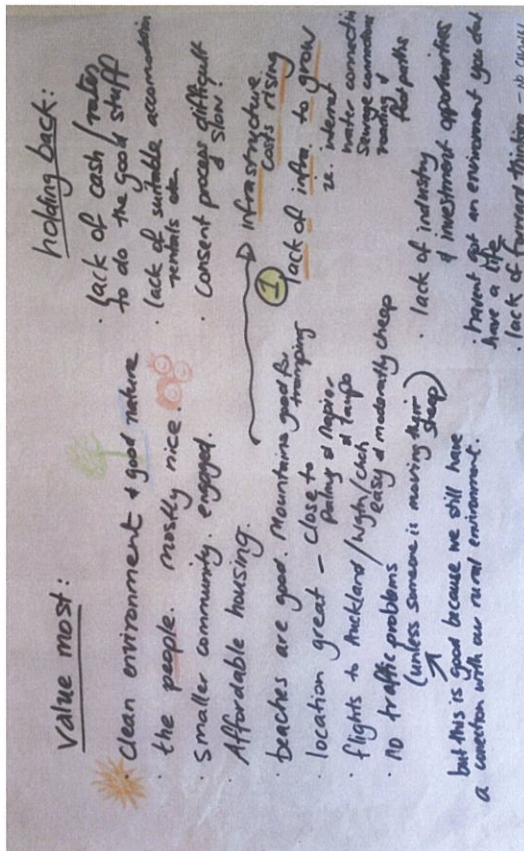 Value most:
· Clean environment & good nature
· the people. mostly nice.
· smaller community. engaged.
· Affordable housing.
· beaches are good. Mountains good for
tramping
· location great – close to
Palmy & Napier
& Taupo
· flights to Auckland/Wgtn/Chch
easy & moderatly cheap
· no traffic problems
(unless someone is moving their
sheep)
but this is good because we still have
a conection with our rural environment.
holding back:
· lack of cash/rates
to do the good stuff
· lack of suitable accomodation
rentals etc.
· Consent process difficult
& slow!
infrastructure
costs rising
① lack of infra to grow
ie. internet
water connection
sewage connections
roading &
footpaths
· lack of industry
& investment opportunities
· havent got an environment you can
have a life
· lack of forward thinking –